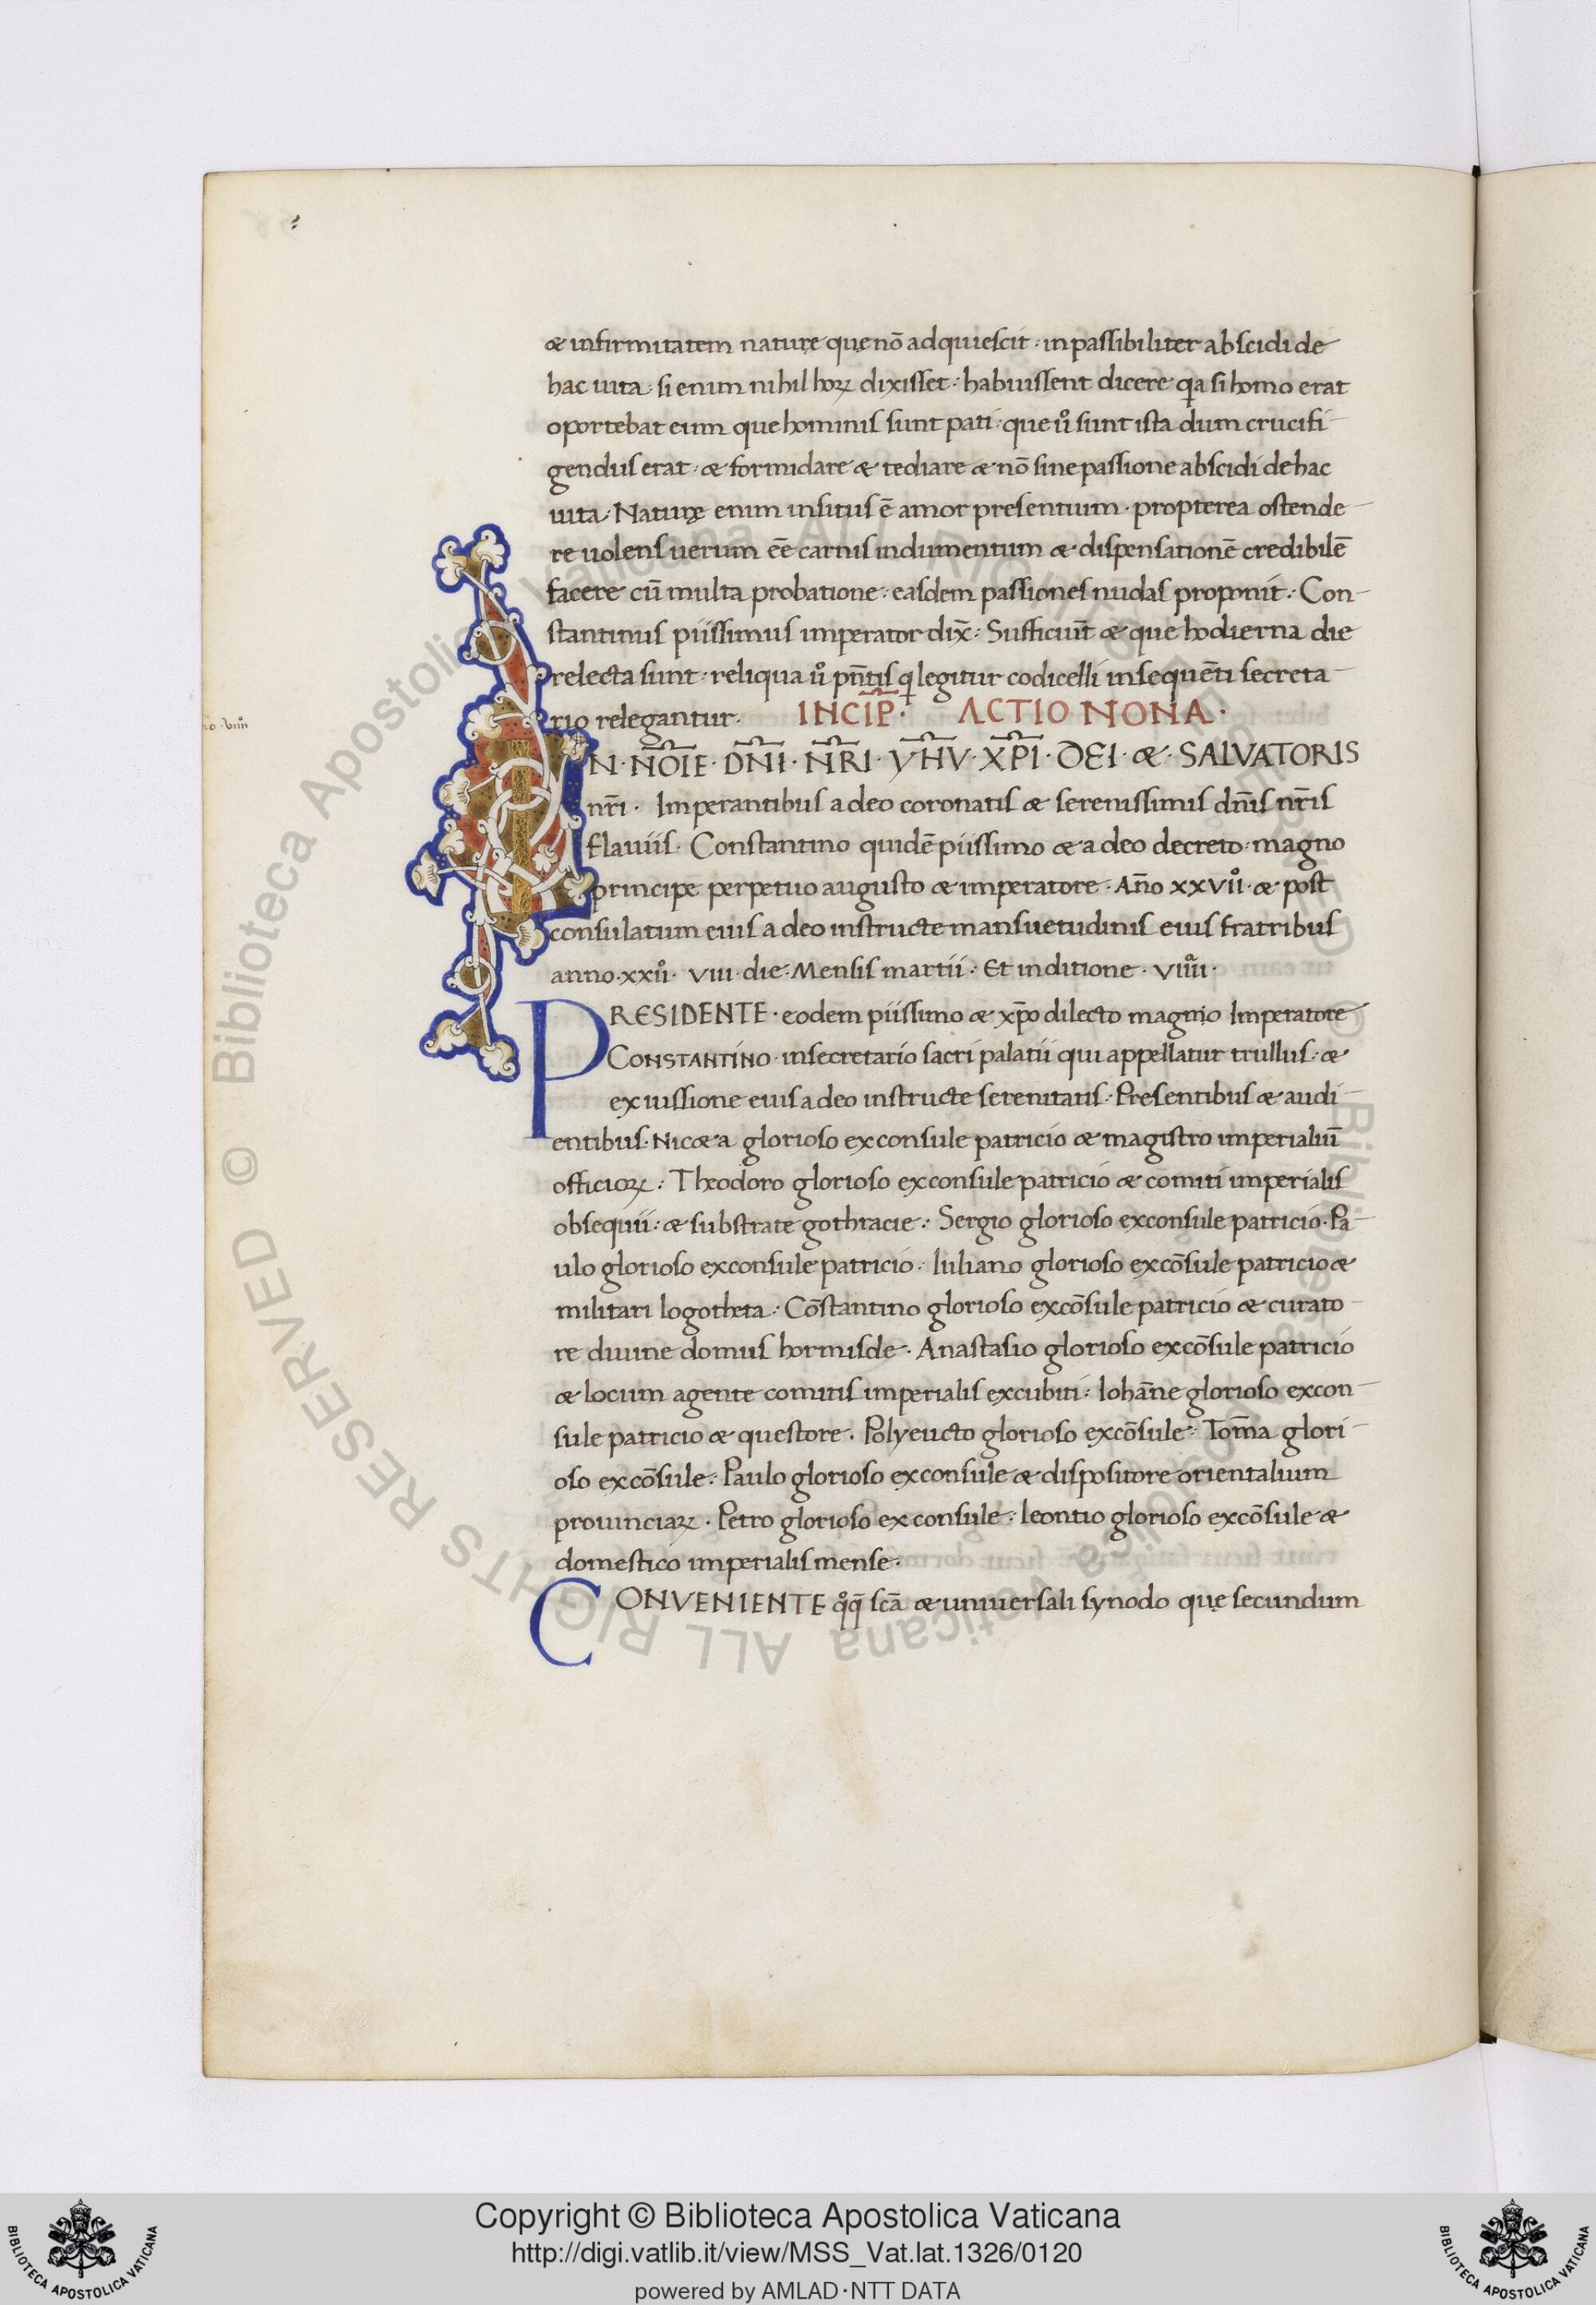 & infirmitatem naturę quę nō adquiescit · inpassibiliter abscidi de
hac uita · si enim nihil hoꝝ dixisset · habuissent dicere qꝛa si homo erat
oportebat eum que hominis sunt pati · que uͦ sunt ista dum crucifi-
gendus erat · & formidare & tediare & nō sine passione abscidi de hac
uita · Naturę enim insitus ē amor presentium · propterea ostende-
re uolens uerum eē carnis indumentum & dispensationē credibilē
facere cū multa probatione · easdem passiones nudas proponit · Con-
stantinus piissimus imperator dix̄ · Sufficiūt & que hodierna die
relecta sunt · reliqua uͦ pn̄tis qi legitur codicelli insequēti secreta-
rio relegantur · INCIP̄ · ACTIO NONA ·
N · NOIE · DNI · NRI · YHV · XPI · DEI · & · SALVATORIS
nr̄i · Imperantibus a deo coronatis & serenissimis dn̄is nr̄is
flauiis · Constantino quidē piissimo & a deo decreto · magno
principe perpetuo augusto & imperatore · Ãno xxviiͦ · & post
consulatum eius a deo instructe mansuetudinis eius fratribus
anno · xxiiͦ · viii · die · Mensis martii · Et inditione · viiii ·
PRESIDENTE · eodem piissimo & xp̄o dilecto magno Imperatore
CONSTANTINO · in secretario sacri palatii qui appellatur trullus · &
ex iussione eius a deo instructe serenitatis · Presentibus & audi-
entibus · Nic&a glorioso exconsule patricio & magistro imperialiū
officioꝝ · Theodoro glorioso exconsule patricio & comiti imperialis
obsequii · & substrate gothracie · Sergio glorioso exconsule patricio · Pa-
ulo glorioso exconsule patricio · Iuliano glorioso excōsule patricio &
militari logotheta · Cōstantino glorioso excōsule patricio & curato-
re diuine domus hormisde · Anastasio glorioso excōsule patricio
& locum agente comitis imperialis excubiti · Iohāne glorioso excon-
sule patricio & questore · Polyeucto glorioso excōsule · Tom̄a glori-
oso excōsule · Paulo glorioso exconsule & dispositore orientalium
prouinciaꝝ · Petro glorioso exconsule · leontio glorioso excōsule &
domestico imperialis mense ·
CONVENIENTE qͦq̄ scā & uniuersali synodo quę secundum
Copyright © Biblioteca Apostolica Vaticana
http://digi.vatlib.it/view/MSS_Vat.lat.1326/0120
powered by AMLAD·NTT DATA
BIBLIOTECA APOSTOLICA VATICANA
BIBLIOTECA APOSTOLICA VATICANA
© Biblioteca Apostolica Vaticana ALL RIGHTS RESERVED
© Biblioteca Apostolica Vaticana ALL RIGHTS RESERVED